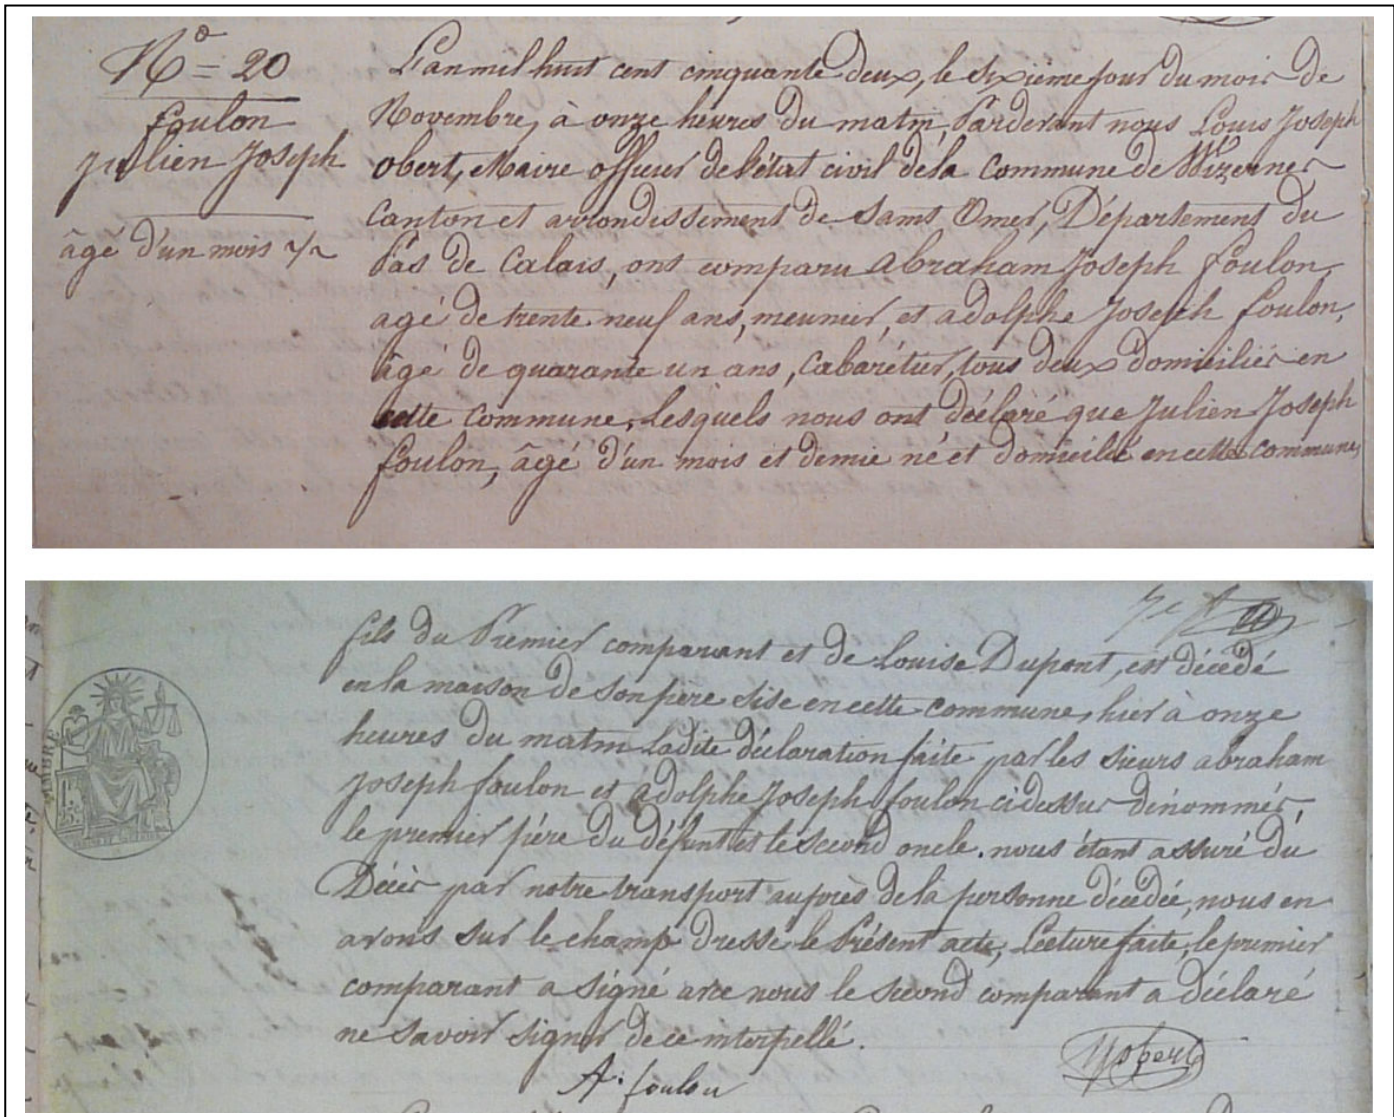 N° = 20
foulon
Julien Joseph
âgé d'un mois 1/2
L'an mil huit cent cinquante deux, le sixième jour du mois de
Novembre, à onze heures du matin, Pardevant nous Louis Joseph
obert, Maire officier de l'état civil de la Commune de Wizernes
Canton et arrondissement de Saint Omer, Département du
Pas de Calais, ont comparu abraham Joseph foulon,
agé de trente neuf ans, meunier, et adolphe Joseph foulon,
âgé de quarante un ans, Cabarétier, tous deux domiciliés en
cette Commune, Lesquels nous ont déclaré que Julien Joseph
foulon, âgé d'un mois et demie né et domicilié en cette commune,
fils du Premier comparant et de Louise Dupont, est décédé
en la maison de son pere sise en cette commune, hier à onze
heures du matin Ladite déclaration faite par les sieurs abraham
Joseph foulon et adolphe Joseph foulon ci dessus dénommés,
le premier père du défunt et le second oncle. nous étant assuré du
Décès par notre transport auprès de la personne décédée, nous en
avons sur le champ dressé le Présent acte, Lecture faite, le premier
comparant a signé avec nous le second comparant a déclaré
ne savoir signer de ce interpellé.
A. foulon